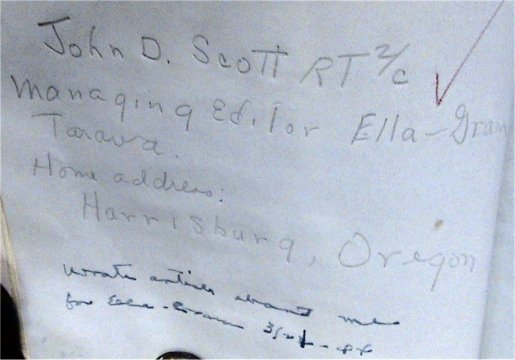 John D. Scott RT 2/c
Managing Editor Ella-Gram
Tarawa.
Home address:
Harrisburg, Oregon
Wrote articles about me
for Ella-Gram